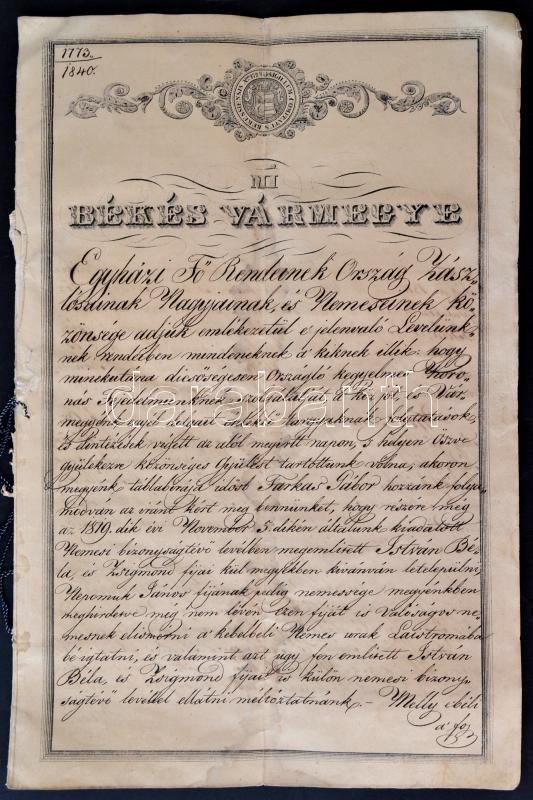 1773.
1840.
MI
BÉKÉS VÁRMEGYE
Egyházi Fő Rendeinek Ország Zász„
lósainak Nagyjainak, és Nemeseinek kö„
zönsége adjuk emlékezetül e' jelenvaló Levelünk„
nek rendeiben mindeneknek a' kiknek illik: hogy
minekutána dicsőségesen Országló kegyelmes Koro„
nás Fejedelmünknek szolgálatját a' közjót, és Vár„
megyénk
és végett az alól megirtt napon, 's helyen öszve
gyülekezve közönséges Gyülést tartottunk volna, akoron
megyénk táblabirája idősb Farkas Gábor hozzánk folya„
modván az iránt kért meg bennünket, hogy részére még
az 1819. dik évi November 5. dikén általunk kiadatott
Nemesi bizonyságtévő levélben megemlített István Bé„
la, és Zsigmond fijai kül megyékben kivánván letelepülni,
Nepomuk János fijának pedig nemessége megyénkben
meghirdetve még nem lévén ezen fiját is Valóságos ne„
mesnek elismérni a' kebelbeli Nemes urak Laistromába
bé igtatni, és valamint azt úgy fen emlitett István
Béla, és Zsigmond fijait is külön nemesi bizony„
ságtévő levéllel ellátni méltóztatnánk. – Melly ebéli
darabanth